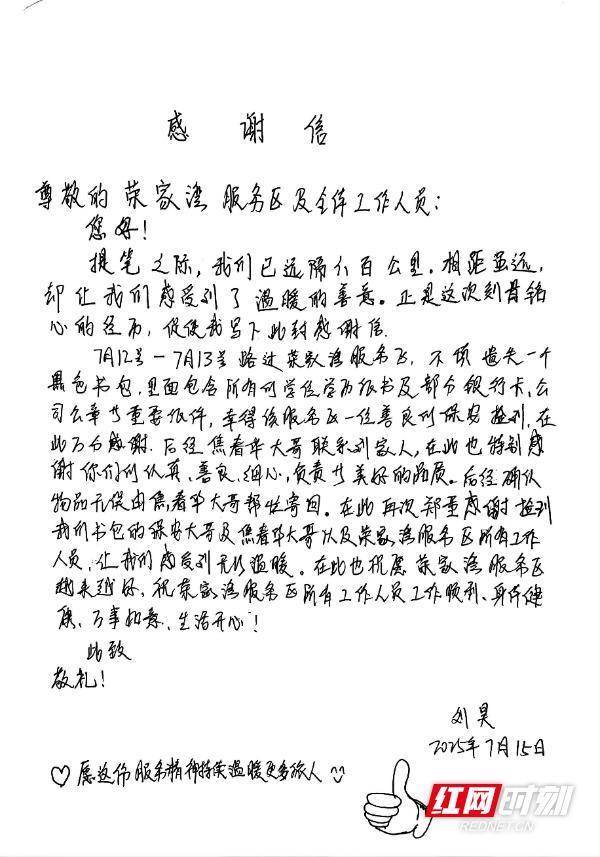 感谢信
尊敬的荣家湾服务区及全体工作人员:
您好!
提笔之际,我们已远隔六百公里。相距虽远,
却让我们感受到了温暖的善意。正是这次刻骨铭
心的经历,促使我写下此封感谢信.
7月12号-7月13号路过荣家湾服务区,不慎遗失一个
黑色书包,里面包含所有的学位学历证书及部分银行卡、公
司公章等重要证件,幸得该服务区一位善良的保安捡到,在
此万分感谢.后经焦春华大哥联系到家人,在此也特别感
谢你们的认真、善良、细心、负责等美好的品质。后经确认
物品无误由焦春华大哥帮忙寄回。在此再次郑重感谢捡到
我们书包的保安大哥及焦春华大哥以及荣家湾服务区所有工作
人员,让我们感受到无比温暖。在此也祝愿荣家湾服务区
越来越好,祝荣家湾服务区所有工作人员工作顺利、身体健
康、万事如意、生活开心!
此致
敬礼!
刘昊
2025年7月15日
♡愿这份服务精神持续温暖更多旅人
红网时刻
REDNET.CN